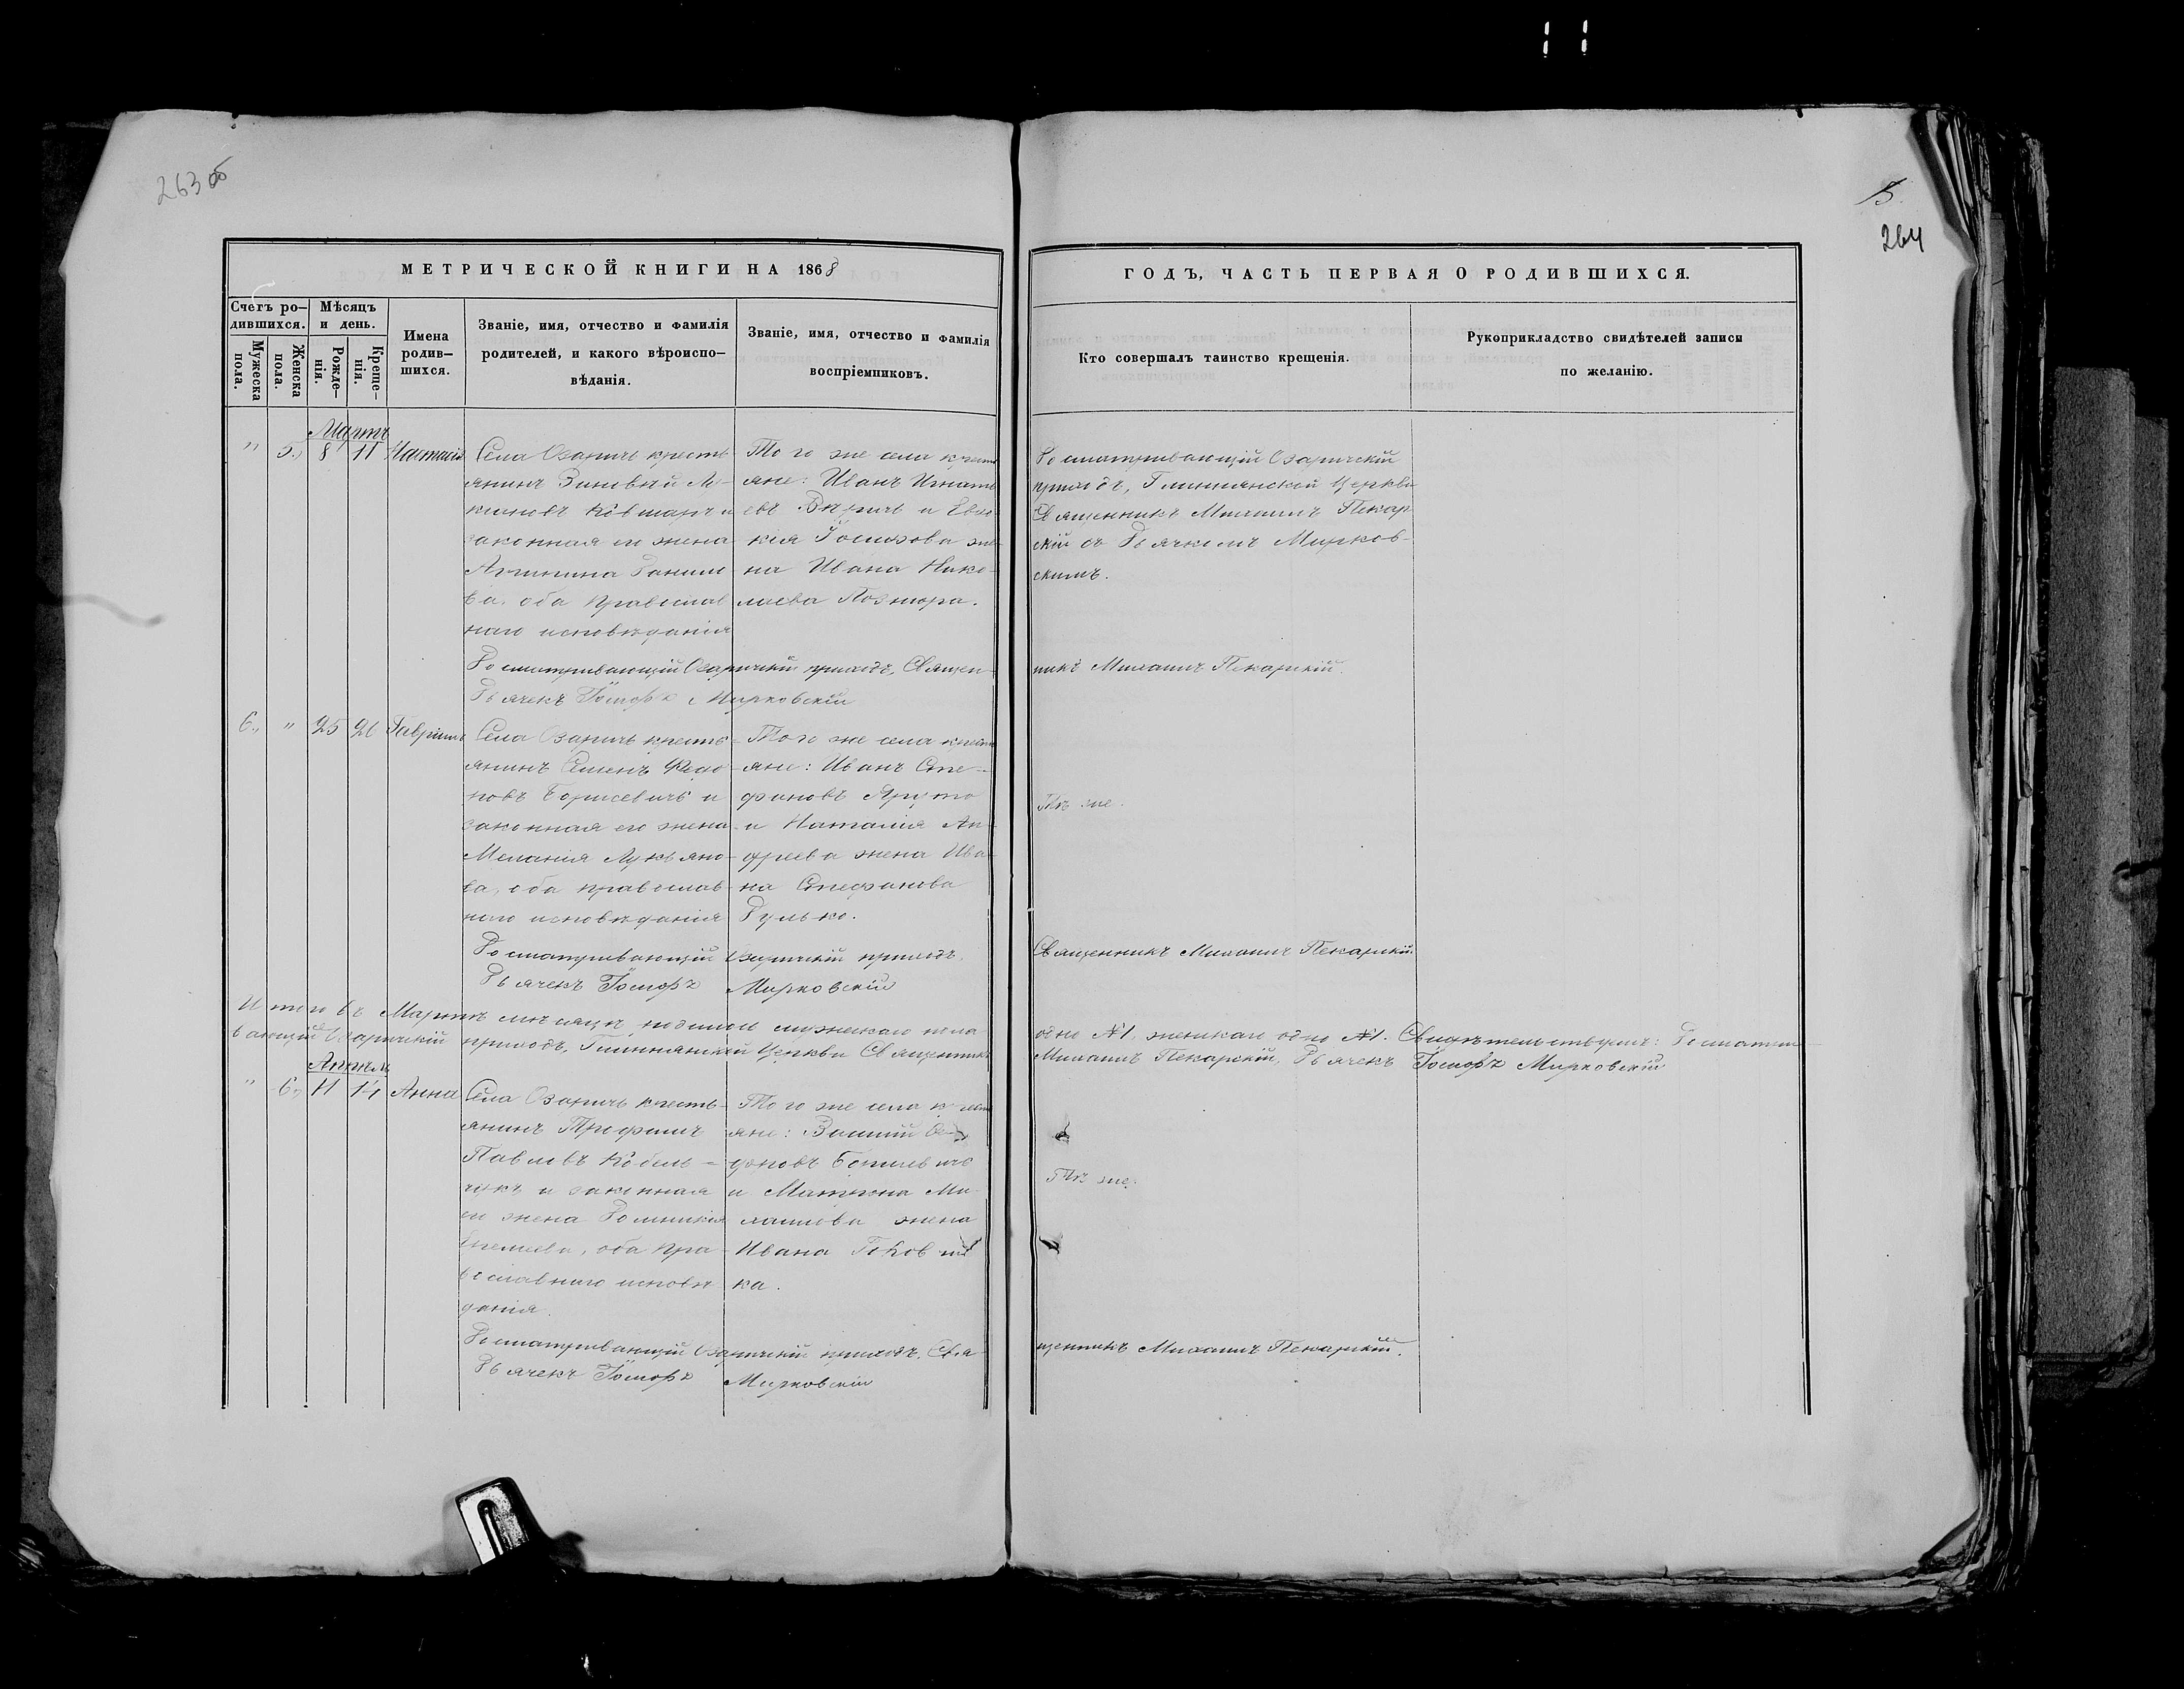 263 об
264
МЕТРИЧЕСКОЙ КНИГИ НА 1868
ГОДЪ, ЧАСТЬ ПЕРВАЯ О РОДИВШИХСЯ.
Счетъ ро-
дившихся.
Мужеска
пола.
Женска
пола.
Мѣсяцъ
и день.
Рожде-
нія.
Креще-
нія.
Имена
родив-
шихся.
Званіе, имя, отчество и фамилія
родителей, и какого вѣроиспо-
вѣданія.
Званіе, имя, отчество и фамилія
воспріемниковъ.
Кто совершалъ таинство крещенія.
Рукоприкладство свидѣтелей записи
по желанію.
Мартъ
" 5. 8 11 Настасія
Села Озаричъ кресть
янинъ Зиновій
и
законная его жена
Данило
ва, оба православ
наго исповѣданія
Того же села кресть
яне: Иванъ Игнать
евъ и Евдо
кія Іосифова же-
на Ивана Нико-
лаева
Досматривающій Озаричскій
приходъ, Глиннянской Церкви
Священникъ Михаилъ Пекар
скій съ Дьячкомъ Мирков-
скимъ.
Досматривающій Озаричскій приходъ, Священ-
никъ Михаилъ Пекарскій.
Дьячекъ Іосифъ Мирковскій
6. " 25 26 Гавріилъ
Села Озаричъ кресть-
янинъ Семенъ
Борисевичъ и
законная его жена
Меланія Лукьяно-
ва, оба православ-
наго исповѣданія
Того же села кресть
яне: Иванъ Сте-
фановъ
и Наталія Ан-
дреева жена Ива-
на Стефанова
Дулько.
Тѣ же.
Досматривающій Озаричскій приходъ,
Священникъ Михаилъ Пекарскій.
Дьячекъ Іосифъ Мирковскій
Итого въ Мартѣ мѣсяцѣ родилось мужескаго пола
одно №1, женскаго одно №1. Свидѣтельствуемъ: Досматри-
вающій Озаричскій приходъ, Глиннянской Церкви Священникъ
Михаилъ Пекарскій, Дьячекъ Іосифъ Мирковскій
Апрѣль
" 6. 11 14 Анна
Села Озаричъ кресть-
янинъ Трофимъ
Павловъ Кобель-
чукъ и законная
его жена Домникія
оба пра-
вославнаго исповѣ
данія.
Того же села кресть
яне: Василій
Борисевичъ
и Матрона Ми-
хайлова жена
Ивана
ка.
Тѣ же.
Досматривающій Озаричскій приходъ, Свя-
щенникъ Михаилъ Пекарскій.
Дьячекъ Іосифъ Мирковскій